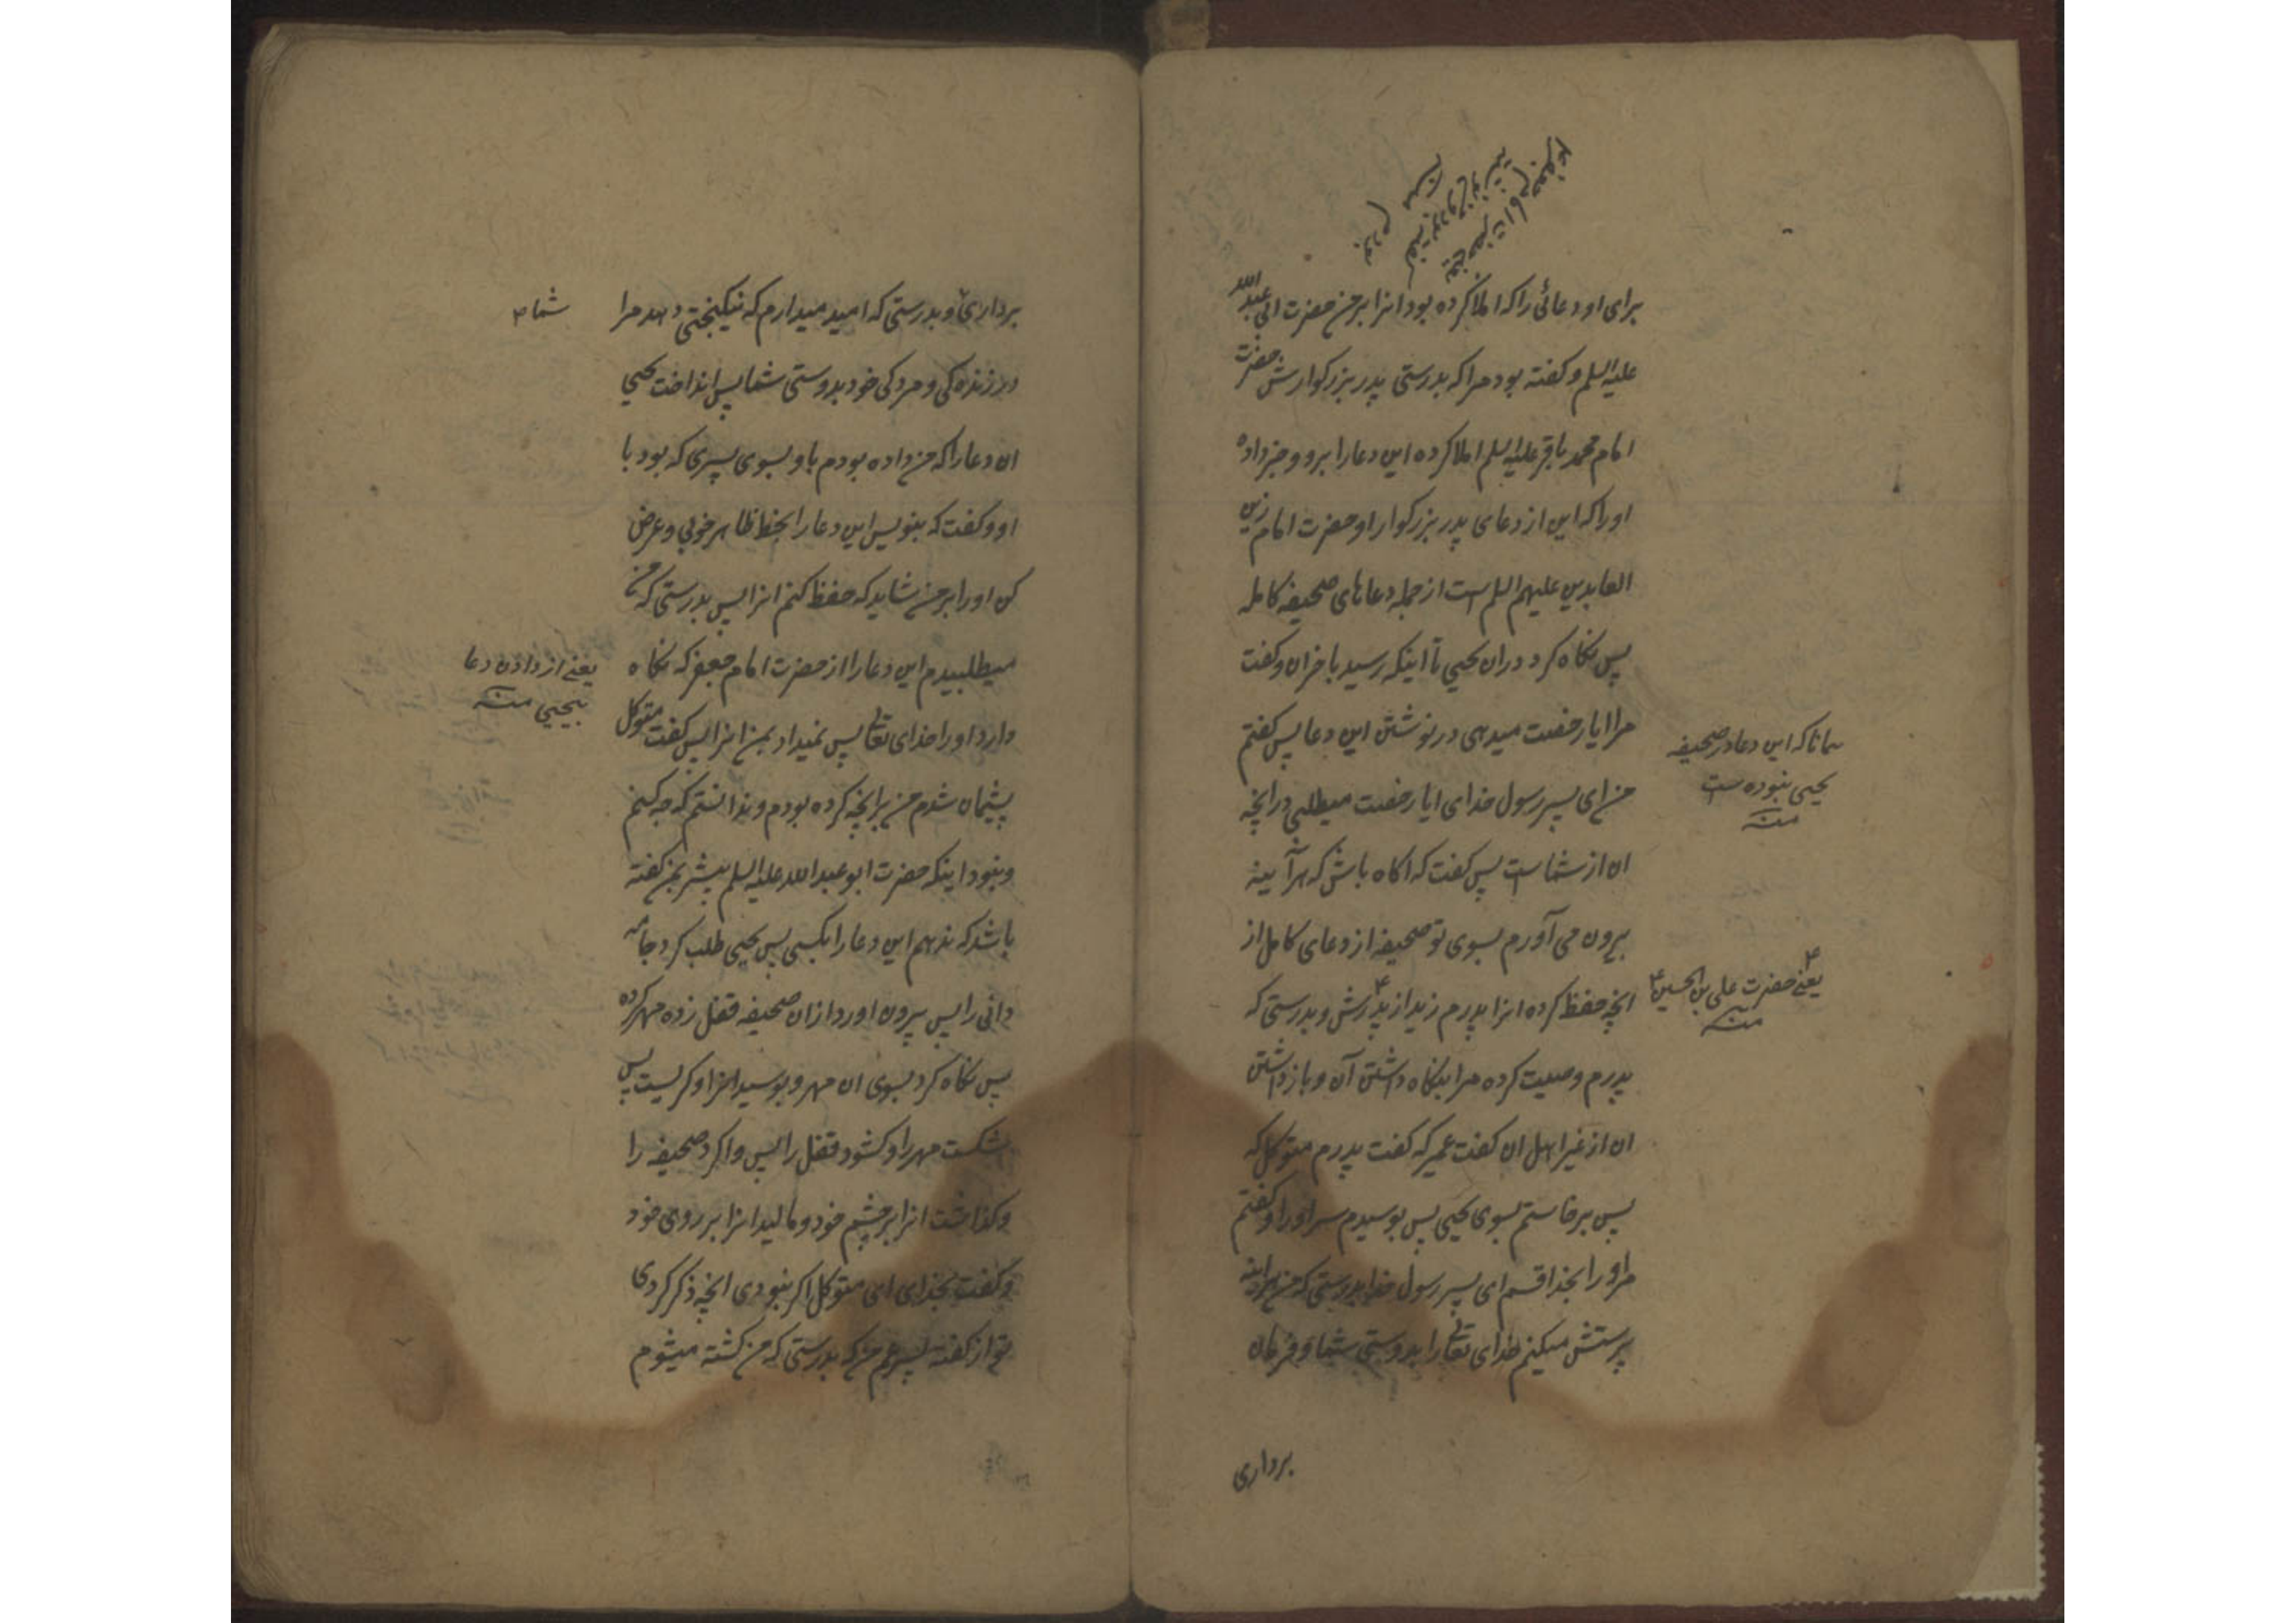 برای او دعائی را که املا کرده بود انرا بر من حضرت ابی عبد الله
علیه السلم و کفته بود مرا که بدرستی پدر بزرکوارش حضرت
امام محمد باقر علیه السلم املا کرده این دعا را برو و خبر داده
او را که این از دعای پدر بزرکوار او حضرت امام زین
العابدین علیهم السلم است از جمله دعاهای صحیفه کامله
پس نکاه کرد دران یحیی تا اینکه رسید باخران و کفت
مرا ایا رخصت میدهی در نوشتن این دعا پس کفتم
من ای پسر رسول خدای ایا رخصت میطلبی در انچه
ان از شماست پس کفت که اکاه باش که هر آینه
بیرون می آورم بسوی تو صحیفه از دعای کامل از
انچه حفظ کرده انرا پدرم زید از پدرش و بدرستی که
پدرم وصیت کرده مرا بنکاه داشتن آن و باز داشتن
ان از غیر اهل ان کفت عمیر که کفت پدرم متوکل که
پس برخاستم بسوی یحیی پس بوسیدم سر او را و کفتم
مر او را بخدا قسم ای پسر رسول خدا بدرستی که من هراینه
پرستش میکنم خدای تعالی را بدوستی شما و فرمان
برداری
همانا که این دعا در صحیفه
یحیی نبوده است
منه
یعنی حضرت علی بن الحسین ۴
منه
برداری و بدرستی که امید میدارم که نیکبختی دهد مرا
در زنده کی و مردکی خود بدوستی شما پس انداخت یحیی
ان دعا را که من داده بودم باو بسوی پسری که بود با
او و کفت که بنویس این دعا را بخط ظاهر خوبی و عرض
کن او را بر من شاید که حفظ کنم انرا پس بدرستی که من
میطلبیدم این دعا را از حضرت امام جعفر که نکاه
دارد او را خدای تعالی پس نمیداد بمن انرا پس کفت متوکل
پشیمان شدم من بر انچه کرده بودم و ندانستم که چه کنم
و نبود اینکه حضرت ابو عبد الله علیه السلم پیشر بمن کفته
باشد که ندهم این دعا را بکسی پس یحیی طلب کرد جامه
دانی را پس بیرون اورد ازان صحیفه قفل زده مهر کرده
پس نکاه کرد بسوی ان مهر و بوسید انرا و کریست پس
شکست مهر را و کشود قفل را پس وا کرد صحیفه را
و کذاشت انرا بر چشم خود و مالید انرا بر روی خود
و کفت بخدای ای متوکل اکر نبودی انچه ذکر کردی
تو از کفته پسر عم من که بدرستی که من کشته میشوم
شما ۴
یعنی از دادن دعا
بیحیی منه